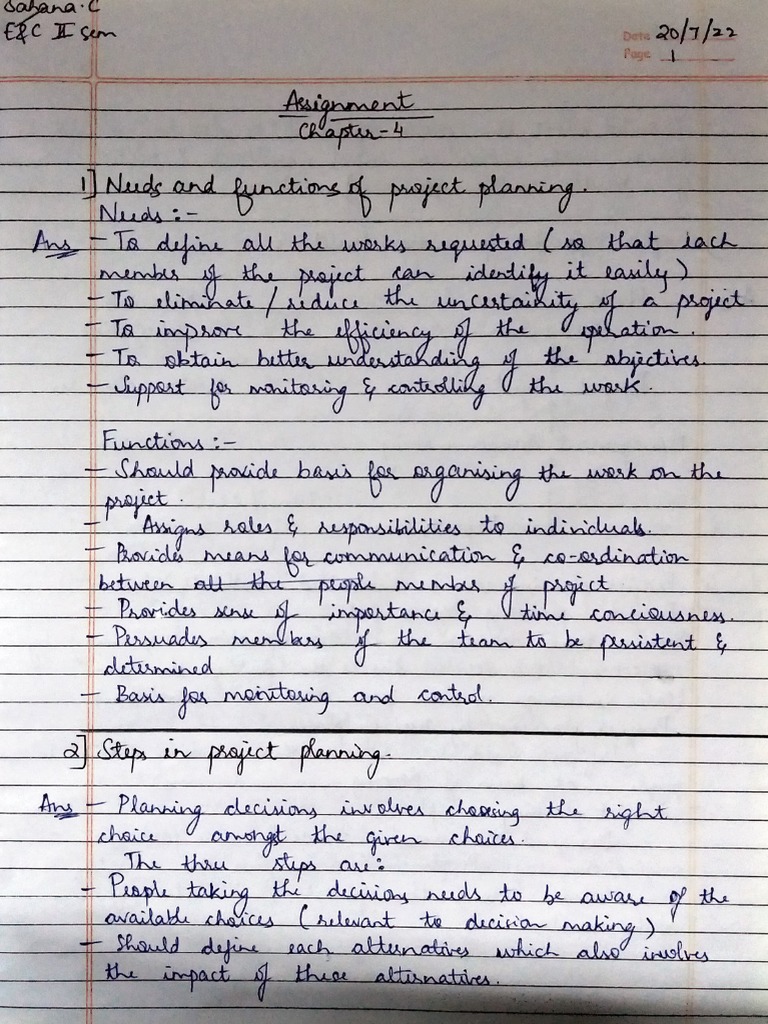 Sahana.C
E&C II Sem
Date 20/7/22
Page 1
Assignment
Chapter-4
1] Needs and functions of project planning.
Needs :-
Ans - To define all the works requested (so that each
member of the project can identify it easily)
- To eliminate / reduce the uncertainity of a project
- To improve the efficiency of the operation.
- To obtain better understanding of the objectives.
- Support for monitoring & controlling the work.
Functions :-
- Should provide basis for organising the work on the
project.
- Assigns roles & responsibilities to individuals.
- Provides means for communication & co-ordination
between all the people member of project
- Provides sense of importance & time conciousness.
- Persuades members of the team to be persistent &
determined
- Basis for monitoring and control.
2] Steps in project planning.
Ans - Planning decisions involves choosing the right
choice amongst the given choices.
The three steps are:
- People taking the decisions needs to be aware of the
available choices (relevant to decision making)
- Should define each alternatives which also involves
the impact of these alternatives.